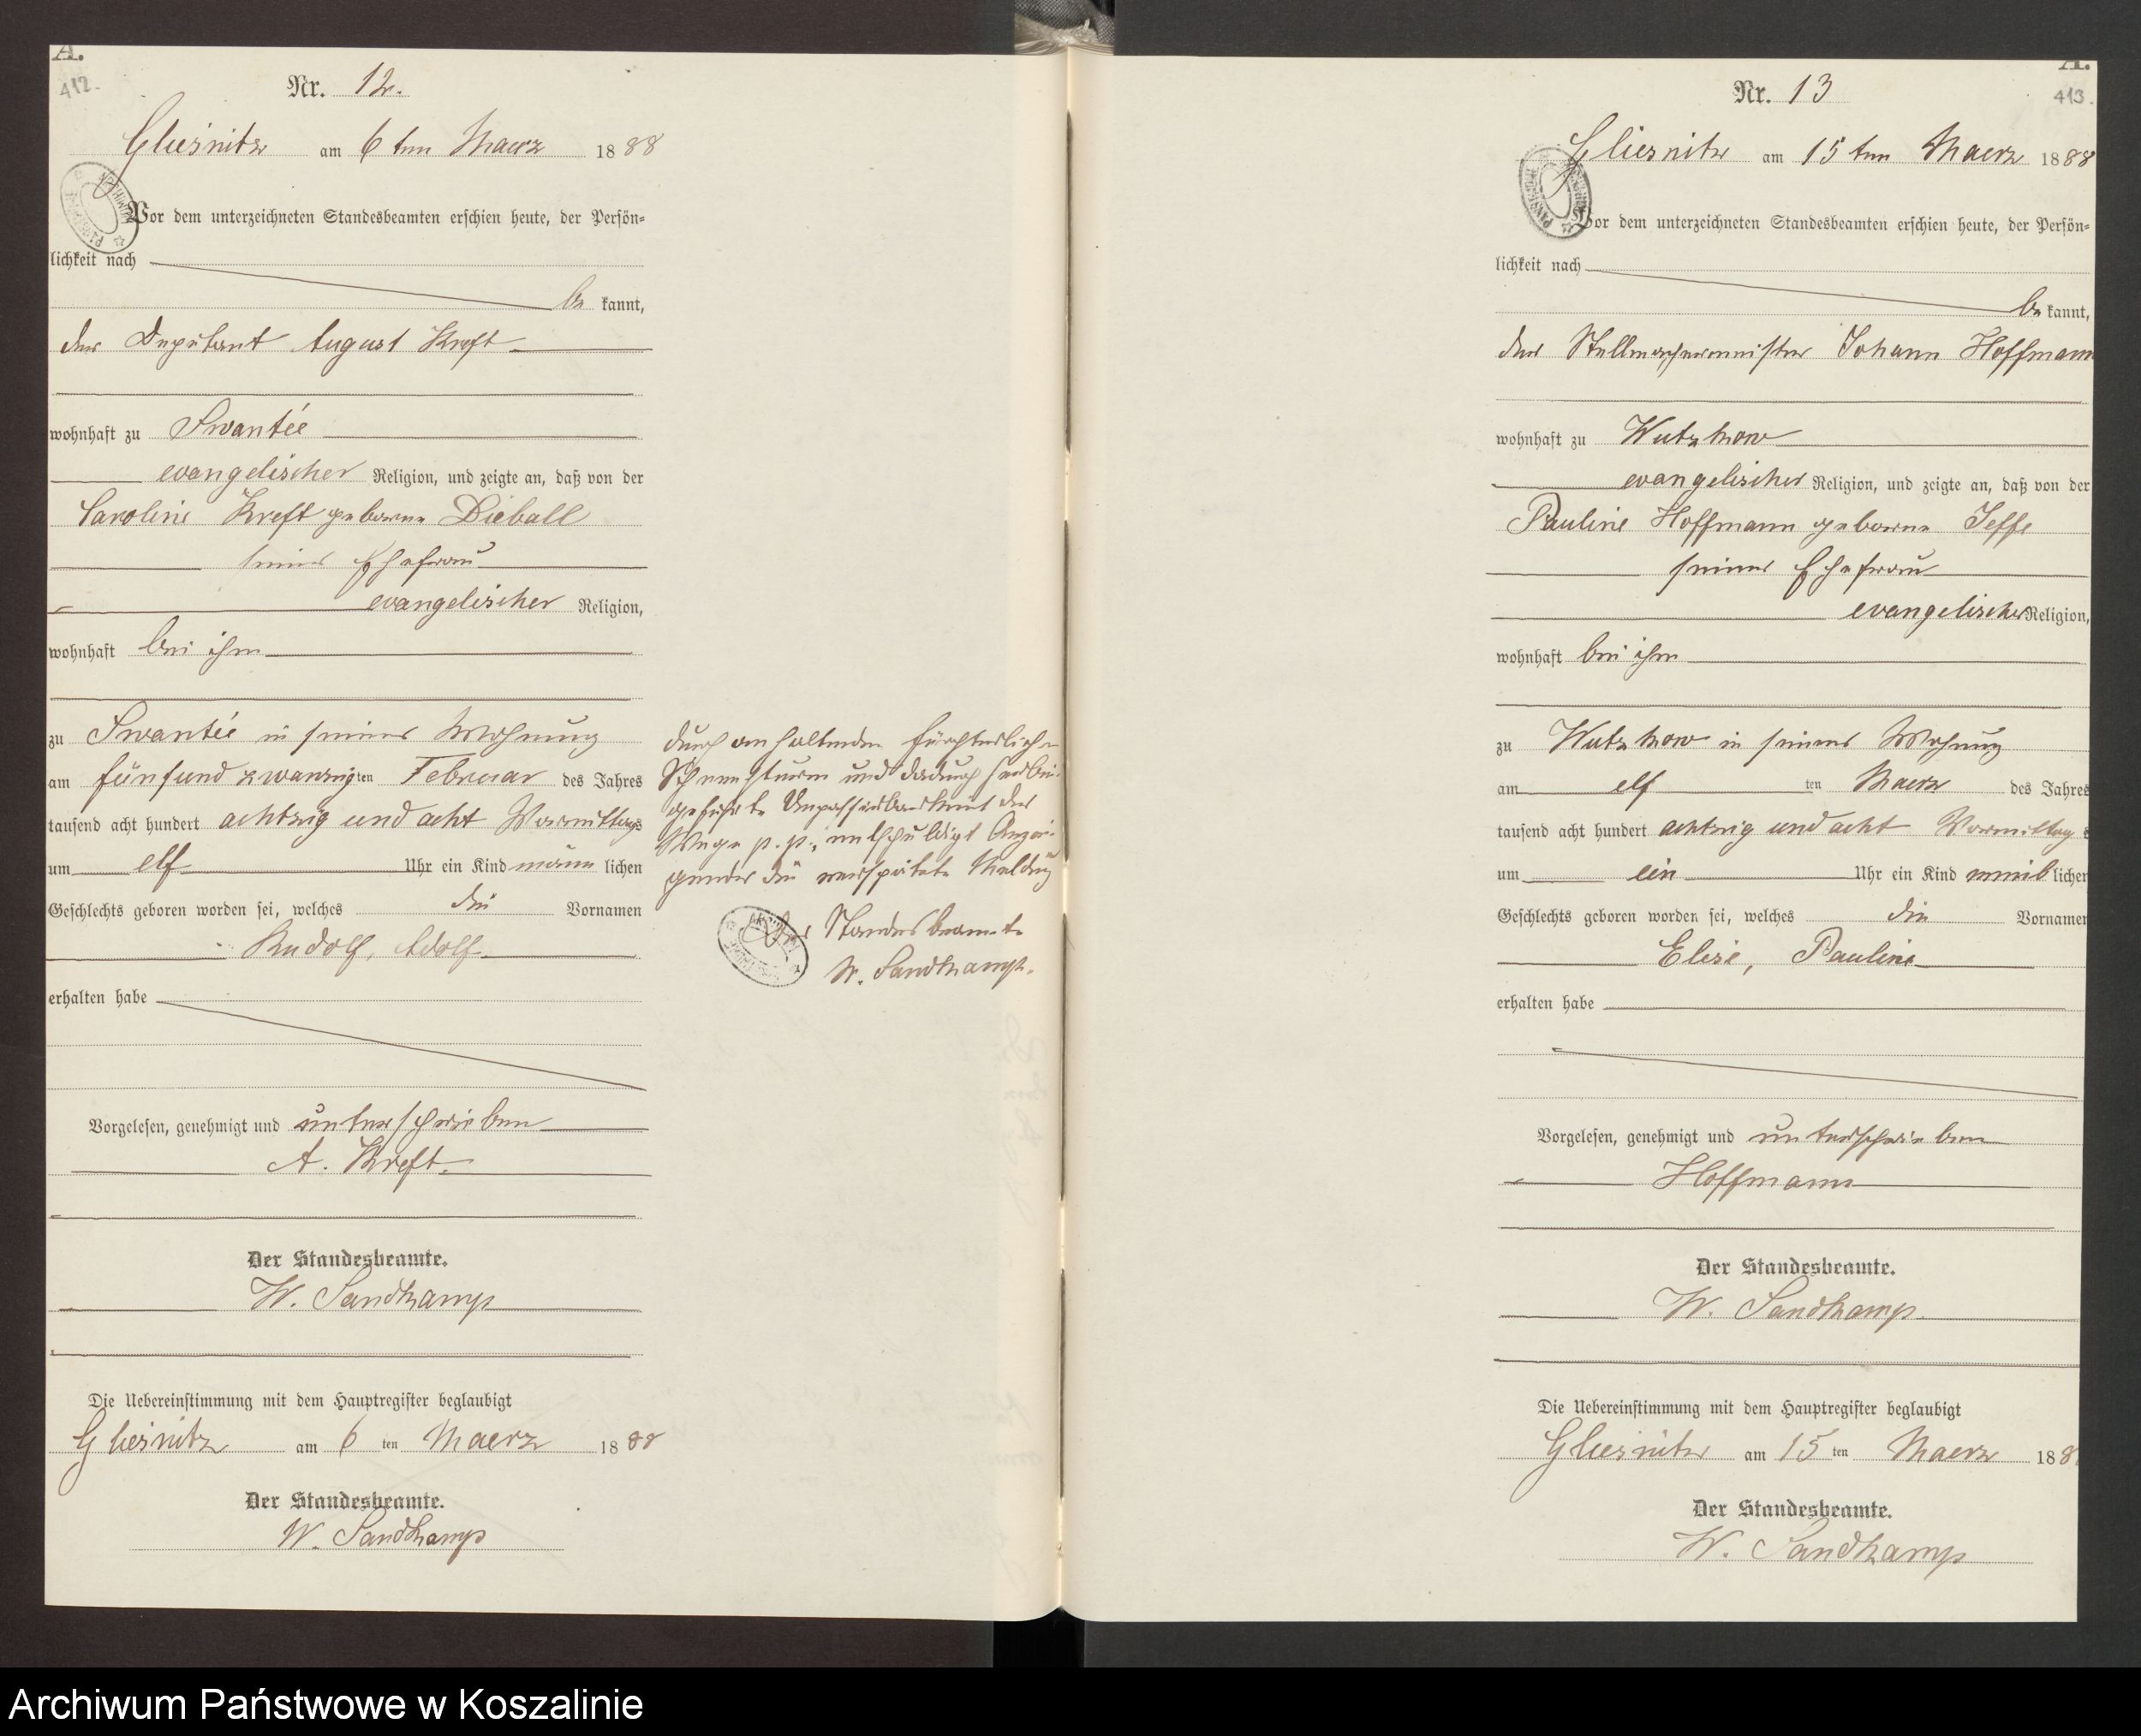 A.
412.
Nr. 12.
Gliesnitz am 6ten Maerz 1888
Vor dem unterzeichneten Standesbeamten erschien heute, der Persön-
lichkeit nach
be kannt,
der Deputant August Kreft
wohnhaft zu Swantée
evangelischer Religion, und zeigte an, daß von der
Caroline Kreft geborne Dieball
seiner Ehefrau
evangelischer Religion,
wohnhaft bei ihm
zu Swantée in seiner Wohnung
am fünfundzwanzigten Februar des Jahres
tausend acht hundert achtzig und acht Vormittags
um elf Uhr ein Kind männ lichen
Geschlechts geboren worden sei, welches die Vornamen
Rudolf, Adolf
erhalten habe
Vorgelesen, genehmigt und unterschrieben
A. Kreft.
Der Standesbeamte.
W. Sandkamp
Die Uebereinstimmung mit dem Hauptregister beglaubigt
Gliesnitz am 6 ten Maerz 1888
Der Standesbeamte.
W. Sandkamp
durch anhaltenden fürchterlichen
Schneesturm und dadurch herbei-
geführte Unpassierbarkeit der
Wege p. p., entschuldigt Anzei-
gender die verspätete Meldung
Der Standesbeamte
W. Sandkamp.
A.
413.
Nr. 13
Gliesnitz am 15ten Maerz 1888
Vor dem unterzeichneten Standesbeamten erschien heute, der Persön-
lichkeit nach
be kannt,
der Stellmachermeister Johann Hoffmann
wohnhaft zu Wutzkow
evangelischer Religion, und zeigte an, daß von der
Pauline Hoffmann geborne Jeffe
seiner Ehefrau
evangelischer Religion,
wohnhaft bei ihm
zu Wutzkow in seiner Wohnung
am elf ten Maerz des Jahres
tausend acht hundert achtzig und acht Vormittags
um ein Uhr ein Kind weib lichen
Geschlechts geboren worden sei, welches die Vornamen
Elise, Pauline
erhalten habe
Vorgelesen, genehmigt und unterschrieben
Hoffmann
Der Standesbeamte.
W. Sandkamp.
Die Uebereinstimmung mit dem Hauptregister beglaubigt
Gliesnitz am 15 ten Maerz 188
Der Standesbeamte.
W. Sandkamp
Archiwum Państwowe w Koszalinie